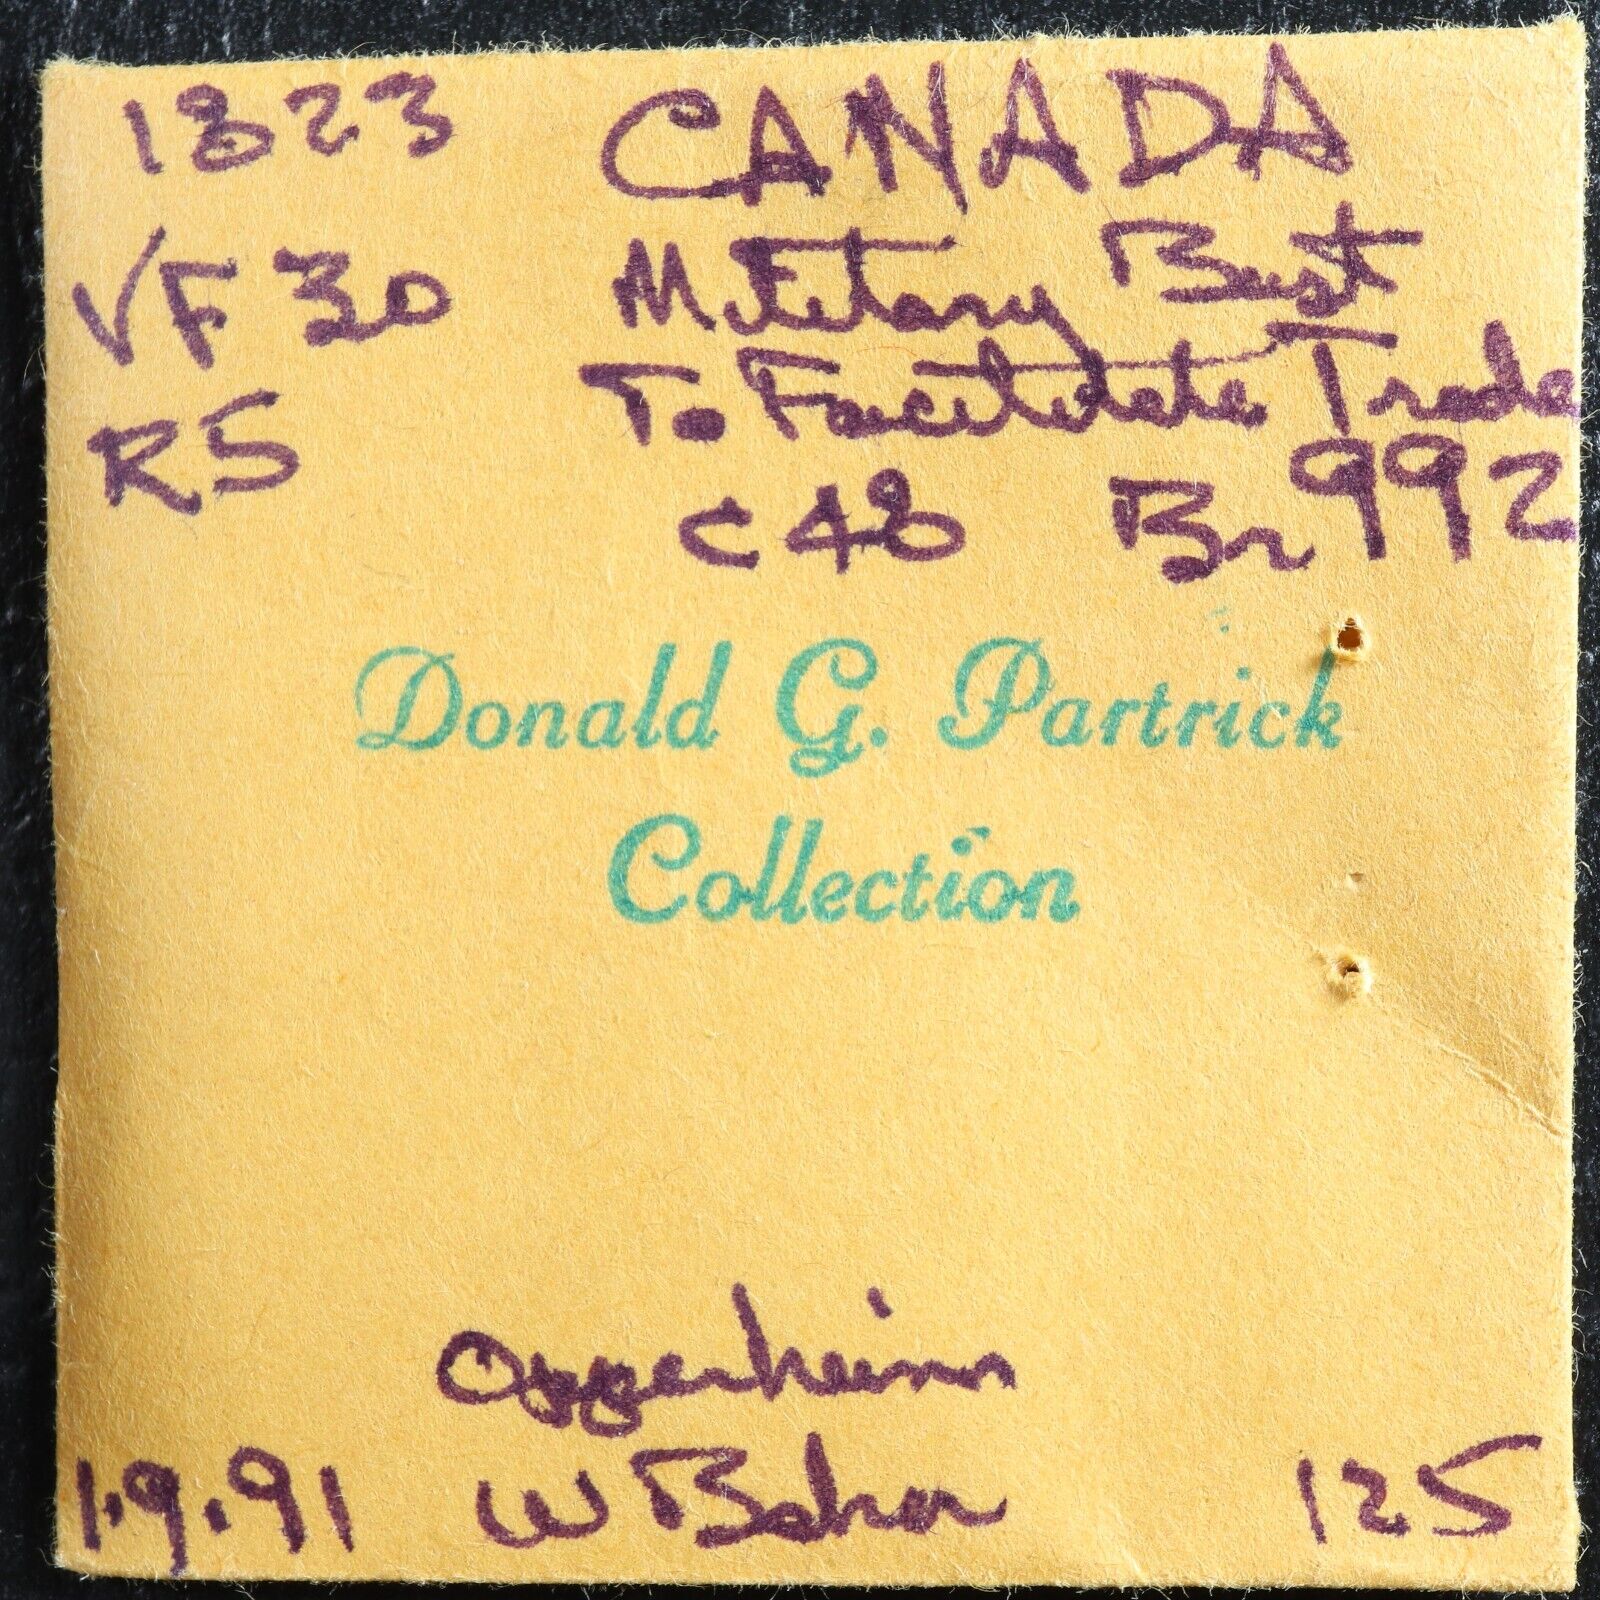 1823 CANADA
VF 30 Military Bust
To Facilitate Trade
R5
C48 Br 992
Donald G. Partrick
Collection
Oppenheim
1.9.91 W Baker 125